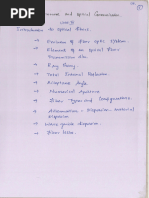 and optical Communication
Unit-III
Introduction to optical fibers
→ Evolution of fiber optic system
→ Element of an optical fiber
Transmission link
→ Ray theory
→ Total Internal Reflection
→ Acceptance Angle
→ Numerical Aperture
→ Fiber Types and Configurations
→ Attenuation - Absorption, Material
dispersion
→ Wave guide dispersion
→ Fiber